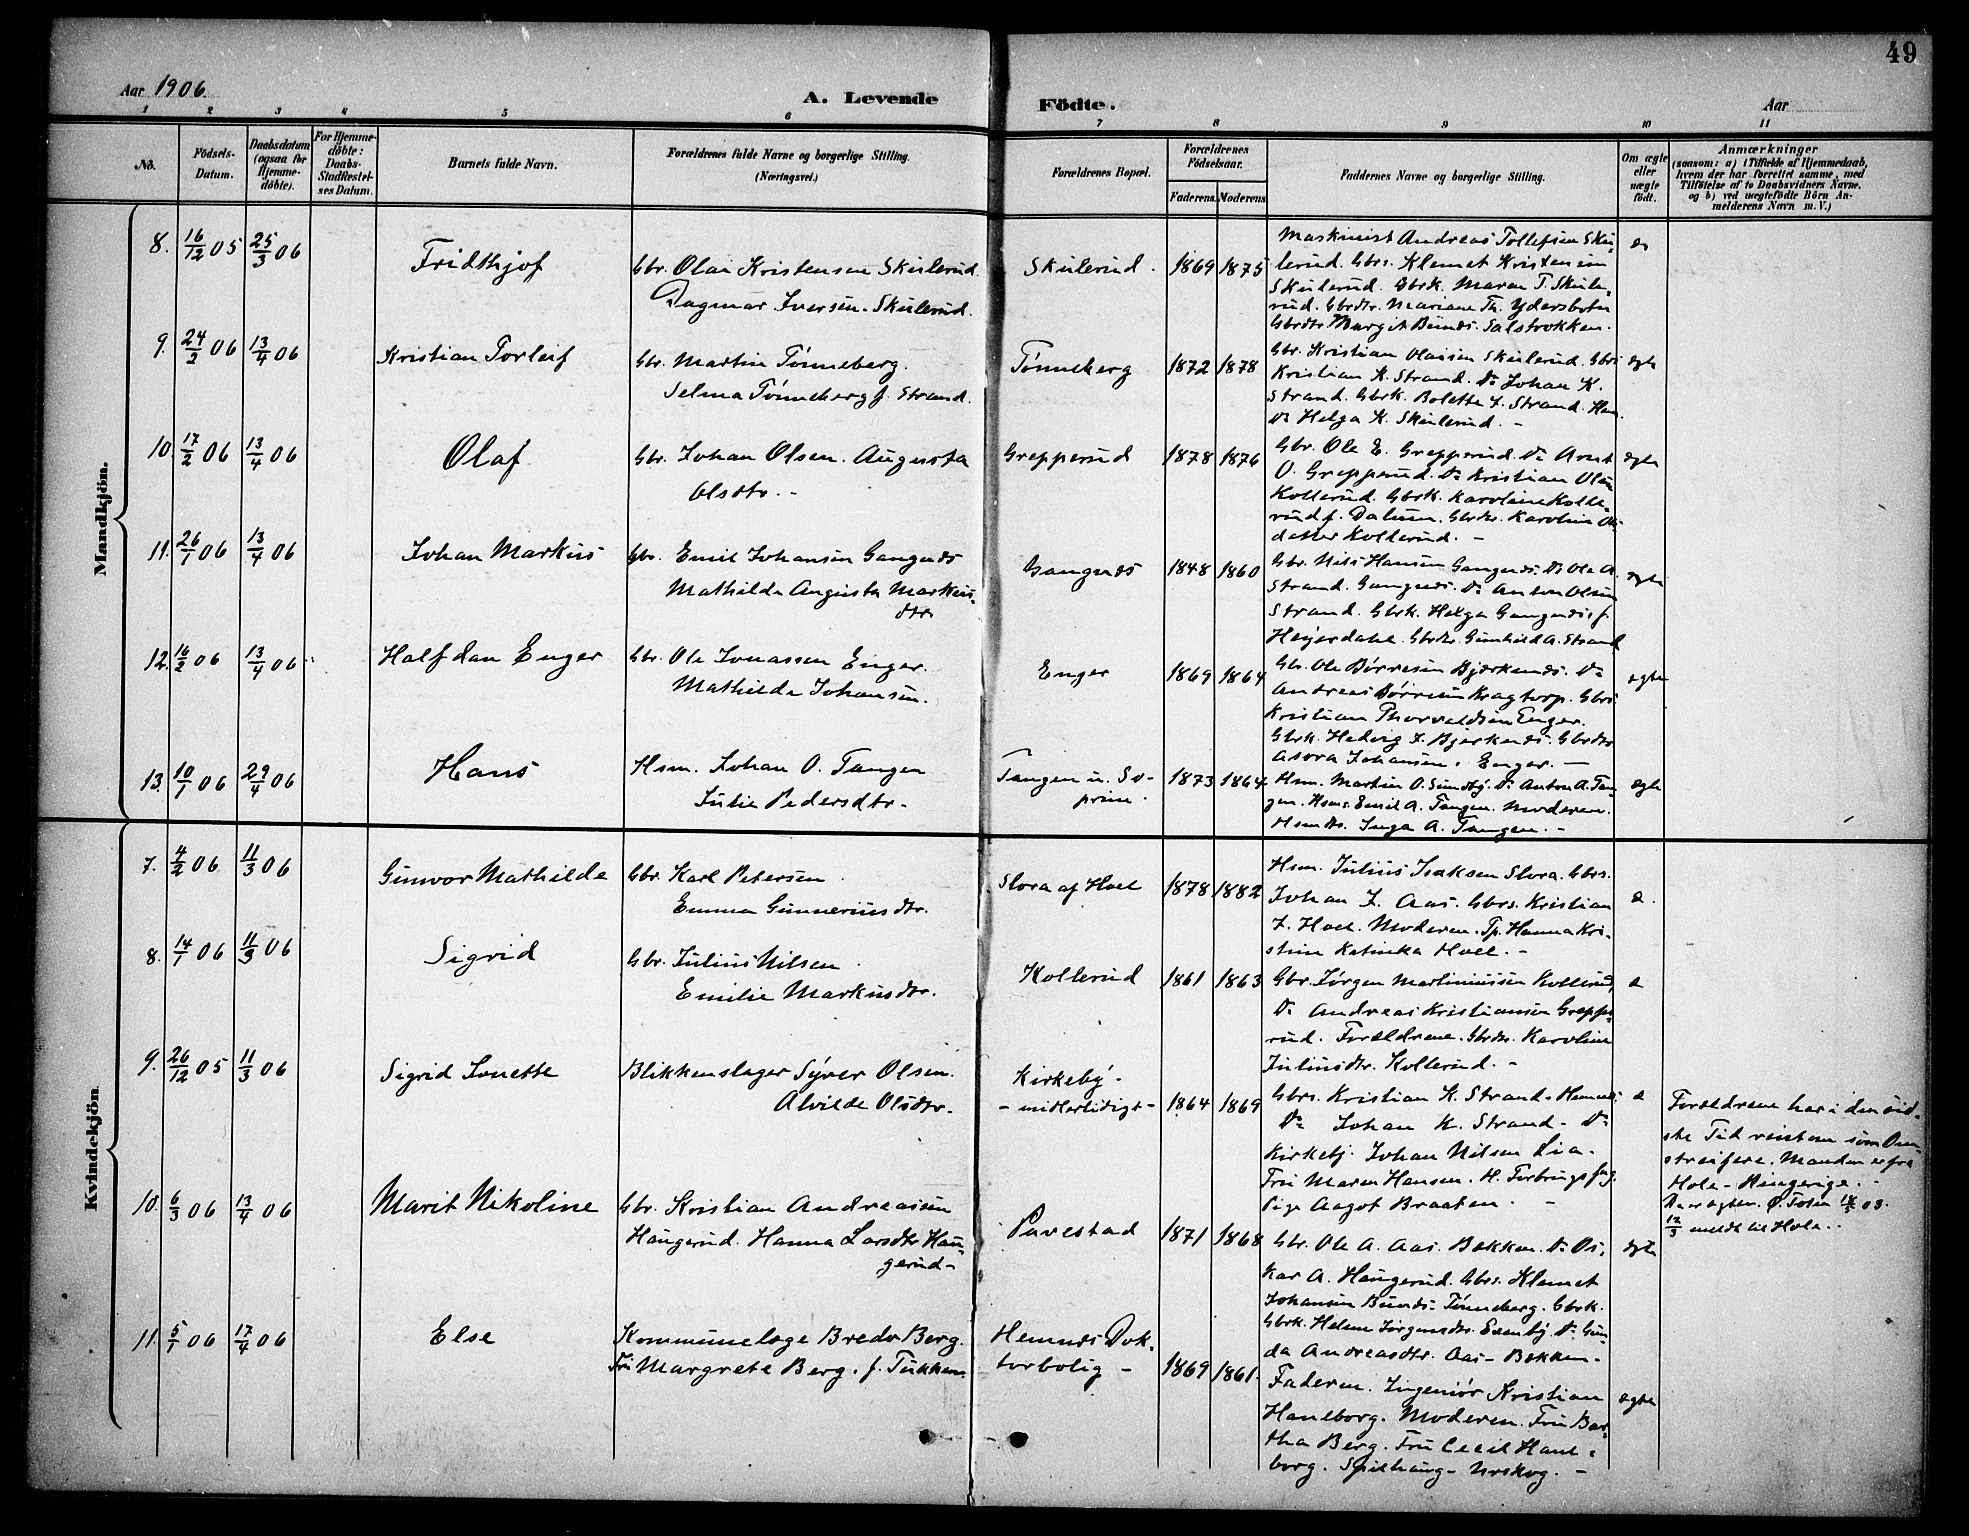 49
Aar 1906.
A. Levende
Födte.
Aar
1 2 3 4 5 6 7 8 9 10 11
No.
Födsels-
Datum.
Daabsdatum
(ogsaa for
Hjemme-
döbte).
For Hjemme-
döbte:
Daabs-
Stadfæstel-
ses Datum.
Barnets fulde Navn.
Forældrenes fulde Navne og borgerlige Stilling.
(Næringsvei.)
Forældrenes Bopæl.
Forældrenes
Födselsaar.
Faderens. Moderens.
Faddernes Navne og borgerlige Stilling.
Om ægte
eller
uægte
födt.
Anmærkninger
(saasom: a) i Tilfælde af Hjemmedaab,
hvem der har forrettet samme, med
Tilföielse af to Daabsvidners Navne.
og b) ved uægtefödte Börn An-
melderens Navn m. V.)
Mandkjön.
8. 16/12 05 25/3 06 Fridthjof
Gbr. Olai Kristensen Skulerud.
Dagmar Iversen. Skulerud.
Skulerud. 1869 1875
Maskinist Andreas Tollefsen Sku-
lerud. Gbrs. Klemet Kristensen
Skulerud. Gbrk. Maren T. Skule-
rud. Gbrdtr. Mariane Th. Ydersbotn
Gbrdtr Margit Bunds. Salstrokken.
9. 24/2 06 13/4 06 Kristian Torleif
Gbr. Martin Tønneberg.
Selma Tønneberg f. Strand.
Tønneberg 1872 1878
Gbr. Kristian Olaisen Skulerud. Gbrs
Kristian K. Strand. Do Johan K.
Strand. Gbrk. Bolette J. Strand.
Do Helga K. Skulerud. -
ægte
10. 17/2 06 13/4 06 Olaf
Gbr. Johan Olsen. Augusta
Olsdtr. -
Grepperud 1878 1876
Gbr. Ole E. Grepperud. Do Arnt
O. Grepperud. Do Kristian Olsen
Kollerud. Gbrk. Karoline Kolle-
rud f. Dalum. Gbrdtr. Karoline Ols-
datter Kollerud. -
ægte
11. 26/1 06 13/4 06 Johan Markus
Gbr. Emil Johansen Gangnæs
Mathilde Augusta Markus-
dtr.
Gangnæs 1848 1860
Gbr. Nils Hansen Gangnæs. Do Ole A.
Strand. Gangnæs. Do Anton Olsen
Strand. Gbrk. Helga Gangnæs f.
Heyerdahl. Gbrdtr. Gunhild A. Strand
ægte
12. 16/2 06 13/4 06 Halfdan Enger
Gbr. Ole Jonassen Enger.
Mathilde Johansen.
Enger 1869 1864
Gbr. Ole Børresen Bjerkenæs. Do
Andreas Børresen Kragtorp. Gbrs
Kristian Thorvaldsen Enger.
Gbrk. Hedvig J. Bjerkenæs. Gbrdtr
Asora Johansen. Enger. -
ægte
13. 10/1 06 29/4 06 Hans
Hsm. Johan O. Tangen
Julie Pedersdtr.
Tangen u. So-
prim. 1873 1864
Hsm. Martin O. Sundby. Do Anton A. Tan-
gen. Hsms. Emil A. Tangen. Moderen.
Hsmdtr. Inga A. Tangen. -
ægte
Kvindekjön
7. 4/2 06 11/3 06 Gunvor Mathilde
Gbr. Karl Petersen
Emma Gunneriusdtr.
Slora af Hoel 1878 1882
Hsm. Julius Isaksen Slora. Gbrs.
Johan J. Aas. Gbrs. Kristian
J. Hoel. Moderen. Tp. Hanna Kri-
stine Katinka Hoel. -
8. 14/1 06 11/3 06 Sigrid
Gbr. Julius Nilsen
Emilie Markusdtr.
Kollerud 1861 1863
Gbr. Jørgen Martiniussen Kollerud,
Do Andreas Kristiansen Greppe-
rud. Forældrene. Gbrdtr. Karoline
Juliusdtr. Kollerud. -
9. 26/12 05 11/3 06 Sigrid Jonette
Blikkenslager Syver Olsen.
Alvilde Olsdtr.
Kirkeby -
- midlertidigt - 1864 1869
Gbrs. Kristian K. Strand - Hemnæs
Do Johan K. Strand - Do
Kirkebj. Johan Nilsen Lia.
Fru Maren Hansen. H.
Pige Aagot Braaten. -
Forældrene har i den sid-
ste Tid reist om som Om-
streifere. Manden er fra
Hole - Ringerige. -
De er ægtev. Ø. Toten 03.
12/3 meldt til Hole. -
10. 6/3 06 13/4 06 Marit Nikoline
Gbr. Kristian Andreassen
Haugerud. Hanna Larsdtr Hau-
gerud -
Pavestad 1871 1868
Gbr. Ole A. Aas. Bakken. Do Os-
kar A. Haugerud. Gbrs. Klemet
Johansen Bunæs - Tønneberg. Gbrk.
Gbrk. Helene Jørgensdtr. Eseby. Do Gun-
da Andreasdtr. Aas - Bakken.
ægte
11. 5/1 06 17/4 06 Else
Kommunelæge Bredo Berg.
Fru Margrete Berg. f. Tukken
Hemnæs Dok-
torbolig - 1869 1861.
Faderen. Ingeniør Kristian
Haneborg. Moderen. Fru Bar-
tha Berg. Fru Cecil Hane-
borg. Spilhaug - Urskog. -
ægte